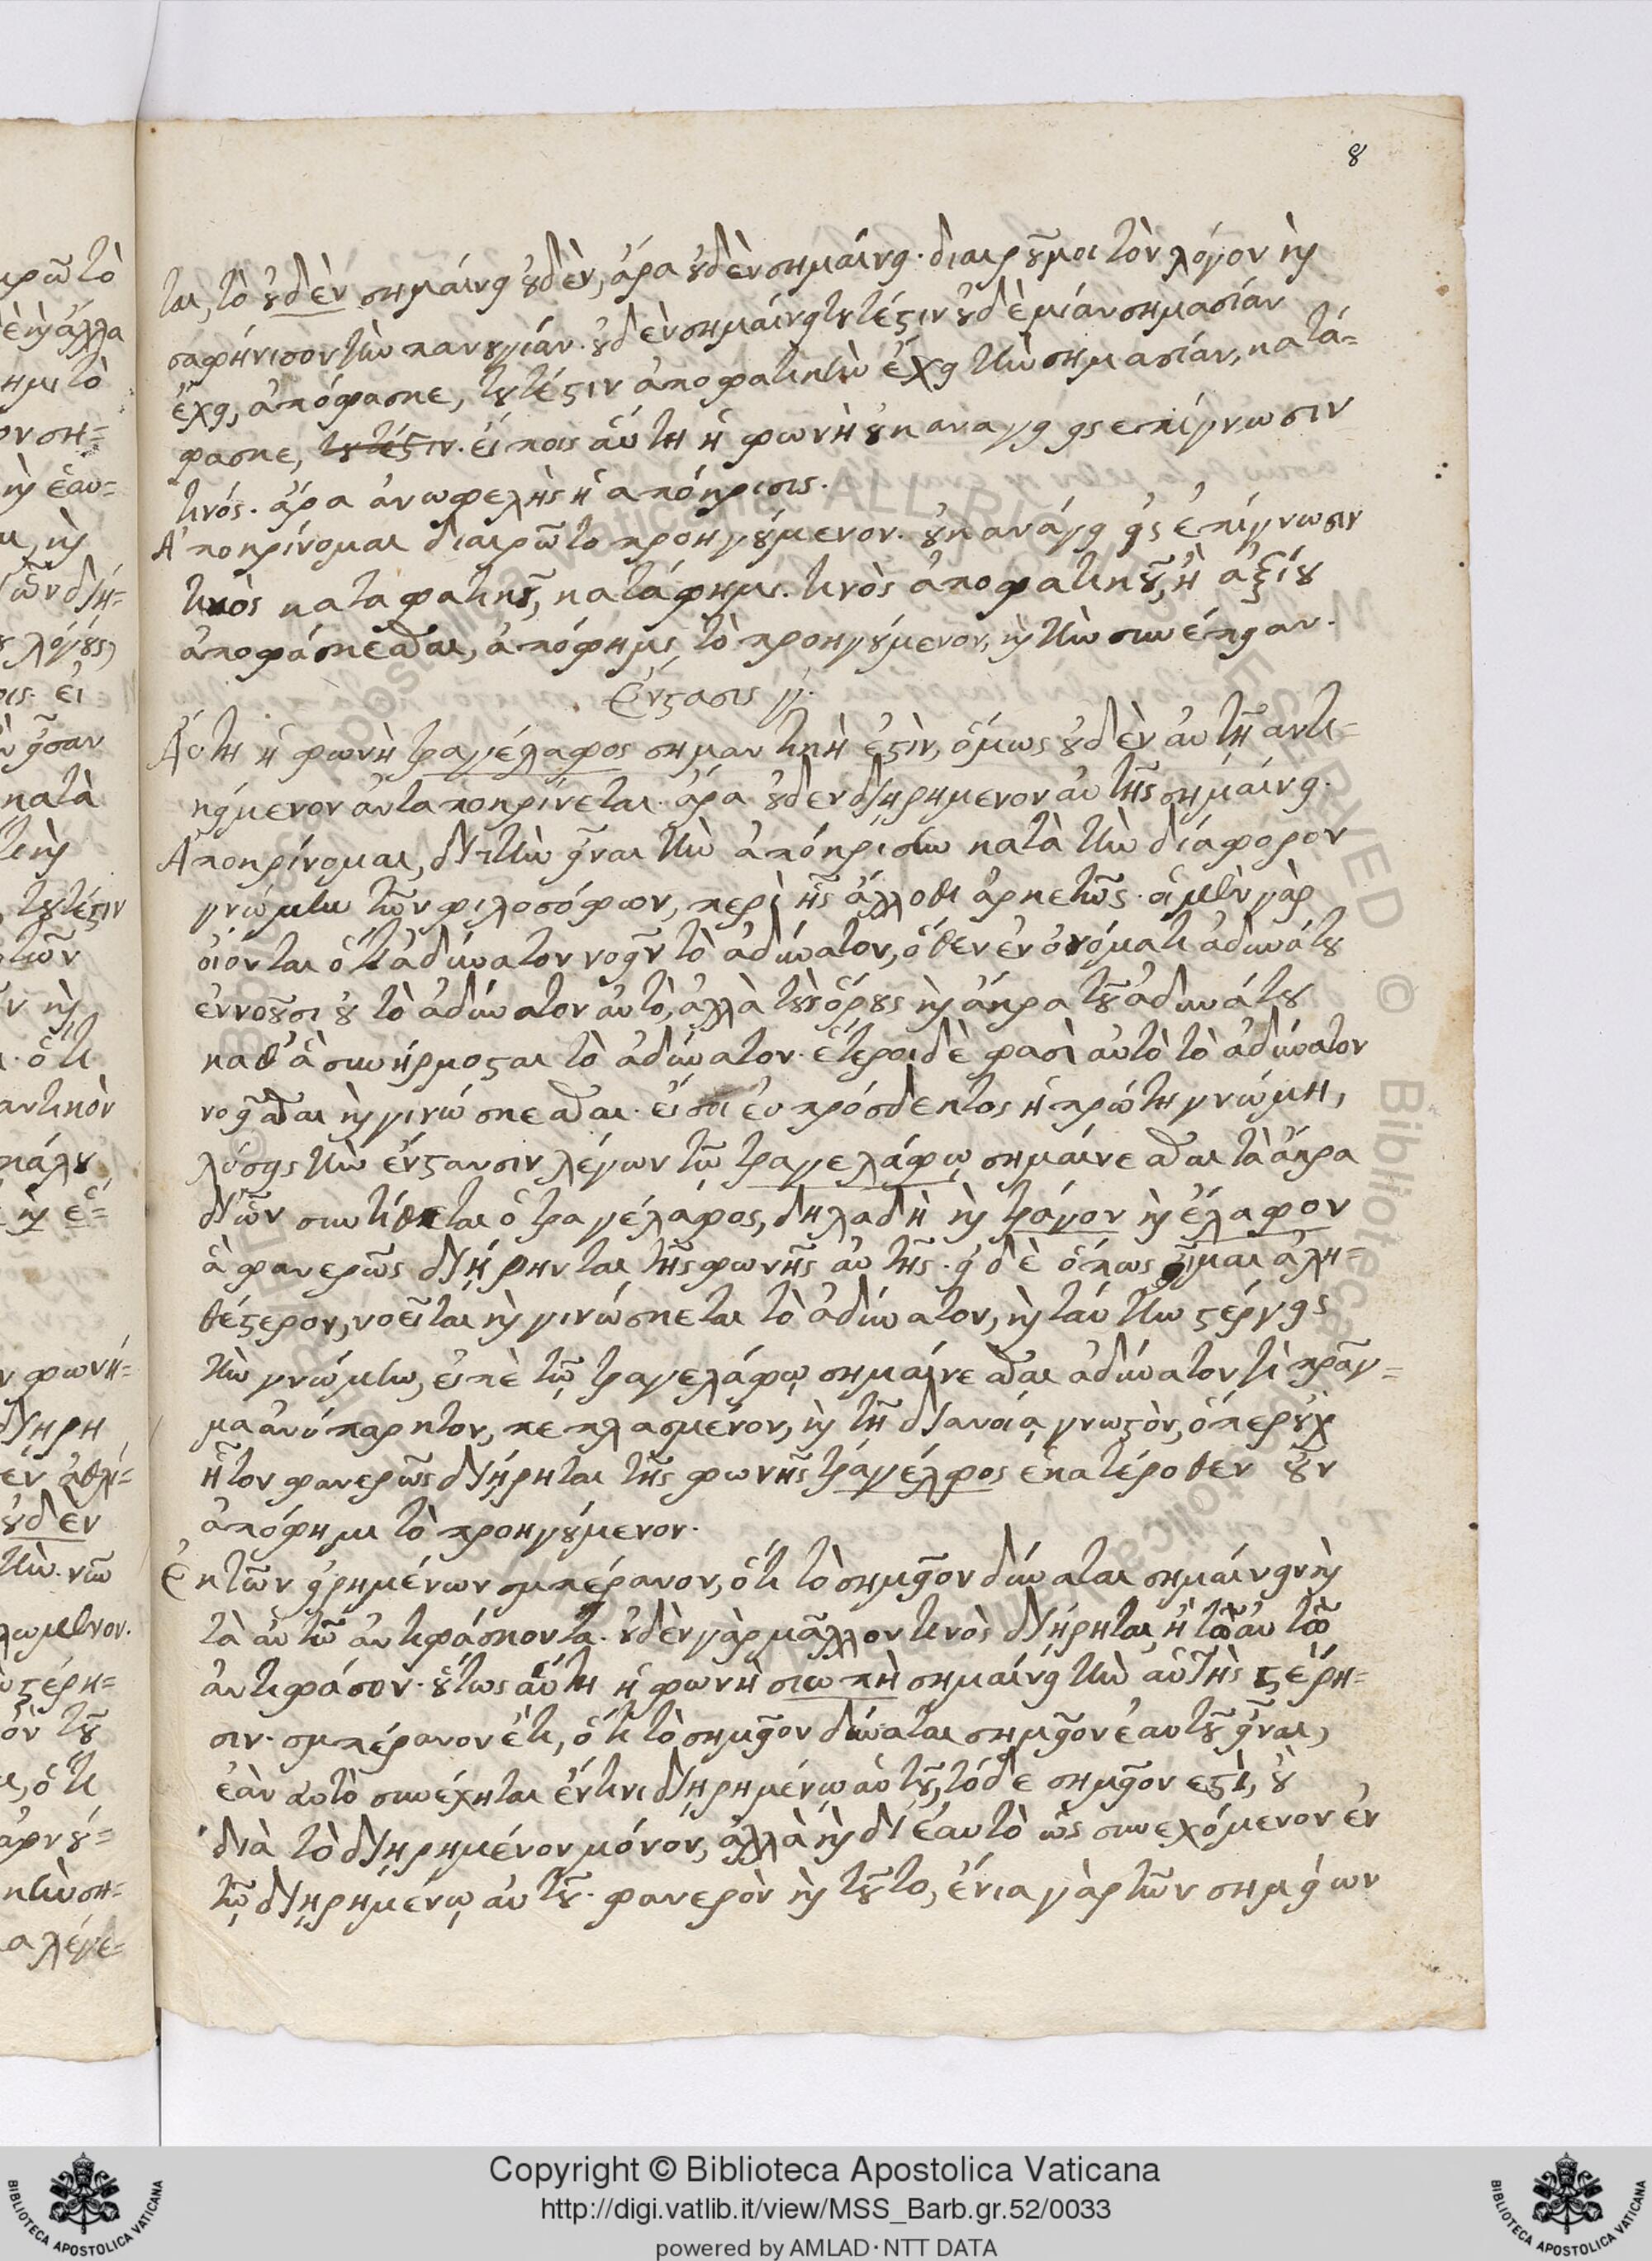 8
ται, τὸ οὐδὲν σημαίνει οὐδὲν, ἄρα οὐδὲν σημαίνει. διαιροῦμαι τὸν λόγον καὶ
σαφήνισον τὴν πανουργίαν. οὐδὲν σημαίνει τουτέστιν οὐδὲ μίαν σημασίαν
ἔχει, ἀπόφασκε, τουτέστιν ἀποφατικὴν ἔχει τὴν σημασίαν, κατά-
φασκε, τουτέστιν. εἴποις αὕτη ἡ φωνὴ οὐκ αναγει εις επίγνωσιν
τινός. ἄρα ἀνωφελὴς ἡ απόκρισις.
Ἀποκρίνομαι διαιρῶ το προηγούμενον. οὐκ ανάγει εἰς ἐπίγνωσιν
τινὸς καταφατικοῦ, κατάφημι. τινὸς ἀποφατικοῦ, ἢ ἀξίου
ἀποφάσκεσθαι, ἀπόφημι τὸ προηγούμενον, καὶ τὴν συνέπειαν.
Ἔνστασις γ.
Αὕτη ἡ φωνὴ τραγέλαφος σημαντικὴ ἐστὶν, ὅμως οὐδὲν αὐτῇ αντι-
κείμενον ἀνταποκρίνεται. ἄρα οὐδεν διῃρημενον αὐτῆς σημαίνει.
Ἀποκρίνομαι, διττὴν εἶναι τὴν ἀπόκρισιν κατὰ τὴν διάφορον
γνώμην τῶν φιλοσόφων, περὶ ἧς ἄλλοθι ἀρκετῶς. οἱ μὲν γὰρ
οἴονται ὅτι ἀδύνατον νοεῖν τὸ ἀδύνατον, ὅθεν ἐν ὀνόματι ἀδυνάτου
ἐννοοῦσι οὐ τὸ ἀδύνατον αὐτὸ, ἀλλὰ τοὺς ὅρους καὶ ἄκρα τοῦ ἀδυνάτου
καθ' ἃ συνήρμοσται τὸ ἀδύνατον. ἕτεροι δὲ φασὶ αὐτὸ τὸ ἀδύνατον
νοεῖσθαι καὶ γινώσκεσθαι. εἴ σοι εὐπρόσδεκτος ἡ πρώτη γνώμη,
λύσεις τὴν ἔνστανσιν λέγων τῷ τραγελάφῳ σημαίνεσθαι τὰ ἄκρα
δι' ὧν συντίθεται ὁ τραγέλαφος, δηλαδὴ καὶ τράγον καὶ ἔλαφον
ἃ φανερῶς διῄρηνται τῆς φωνῆς αὐτῆς. εἰ δὲ ὅπως οἶμαι ἀλη-
θέστερον, νοεῖται καὶ γινώσκεται τὸ ἀδύνατον, καὶ ταύτην στέργεις
τὴν γνώμην, εἰπὲ τῷ τραγελάφῳ σημαίνεσθαι ἀδύνατον τὶ πρᾶγ-
μα ἀνύπαρκτον, πεπλασμένον, καὶ τῇ διανοίᾳ γνωστὸν, ὅπερ οὐχ
ἧττον φανερῶς διῄρηται τῆς φωνῆς τραγέλφος ἑκατέροθεν οὖν
ἀπόφημι τὸ προηγούμενον.
Ἐκ τῶν εἰρημένων συμπέρανον, ὅτι τὸ σημεῖον δύναται σημαίνειν καὶ
τὰ αὐτῷ ἀντιφάσκοντα. οὐδὲν γὰρ μᾶλλον τινὸς διῄρηται, ἢ τῶ αὐτῶ
ἀντιφάσον. οὕτως αὕτη ἡ φωνὴ σιωπὴ σημαίνει τὴν αὐτῆς στέρη-
σιν. συμπέρανον ἔτι, ὅτι τὸ σημεῖον δύναται σημεῖον ἑαυτοῦ εἶναι,
ἐὰν αὐτὸ συνέχηται ἔν τινι διῃρημένῳ αὐτοῦ, τόδε σημεῖον εστὶ, οὐ
διὰ τὸ διῃρημένον μόνον, ἀλλὰ καὶ δι' ἑαυτὸ ὡς συνεχόμενον ἐν
τῷ διῃρημένῳ αὐτοῦ. φανερὸν καὶ τοῦτο, ἔνια γὰρ τῶν σημείων
Copyright © Biblioteca Apostolica Vaticana
http://digi.vatlib.it/view/MSS_Barb.gr.52/0033
powered by AMLAD·NTT DATA
BIBLIOTECA APOSTOLICA VATICANA
BIBLIOTECA APOSTOLICA VATICANA